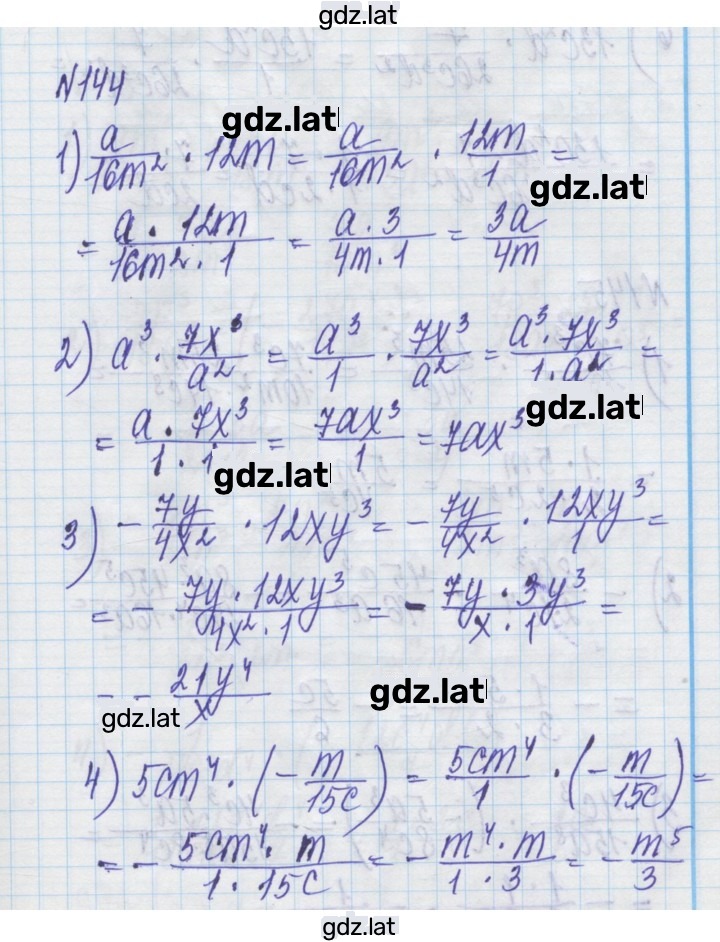 gdz.lat
N144
gdz.lat
1) a/16m² · 12m = a/16m² · 12m/1 =
gdz.lat
= a · 12m/16m² · 1 = a · 3/4m · 1 = 3a/4m
2) a³ · 7x³/a² = a³/1 · 7x³/a² = a³ · 7x³/1 · a² =
gdz.lat
= a · 7x³/1 · 1 = 7ax³/1 = 7ax³
gdz.lat
3) - 7y/4x² · 12xy³ = - 7y/4x² · 12xy³/1 =
= - 7y · 12xy³/4x² · 1 = - 7y · 3y³/x · 1 =
= - 21y⁴/x
gdz.lat
gdz.lat
4) 5cm⁴ · (- m/15c) = 5cm⁴/1 · (- m/15c) =
= - 5cm⁴ · m/1 · 15c = - m⁴ · m/1 · 3 = - m⁵/3
gdz.lat